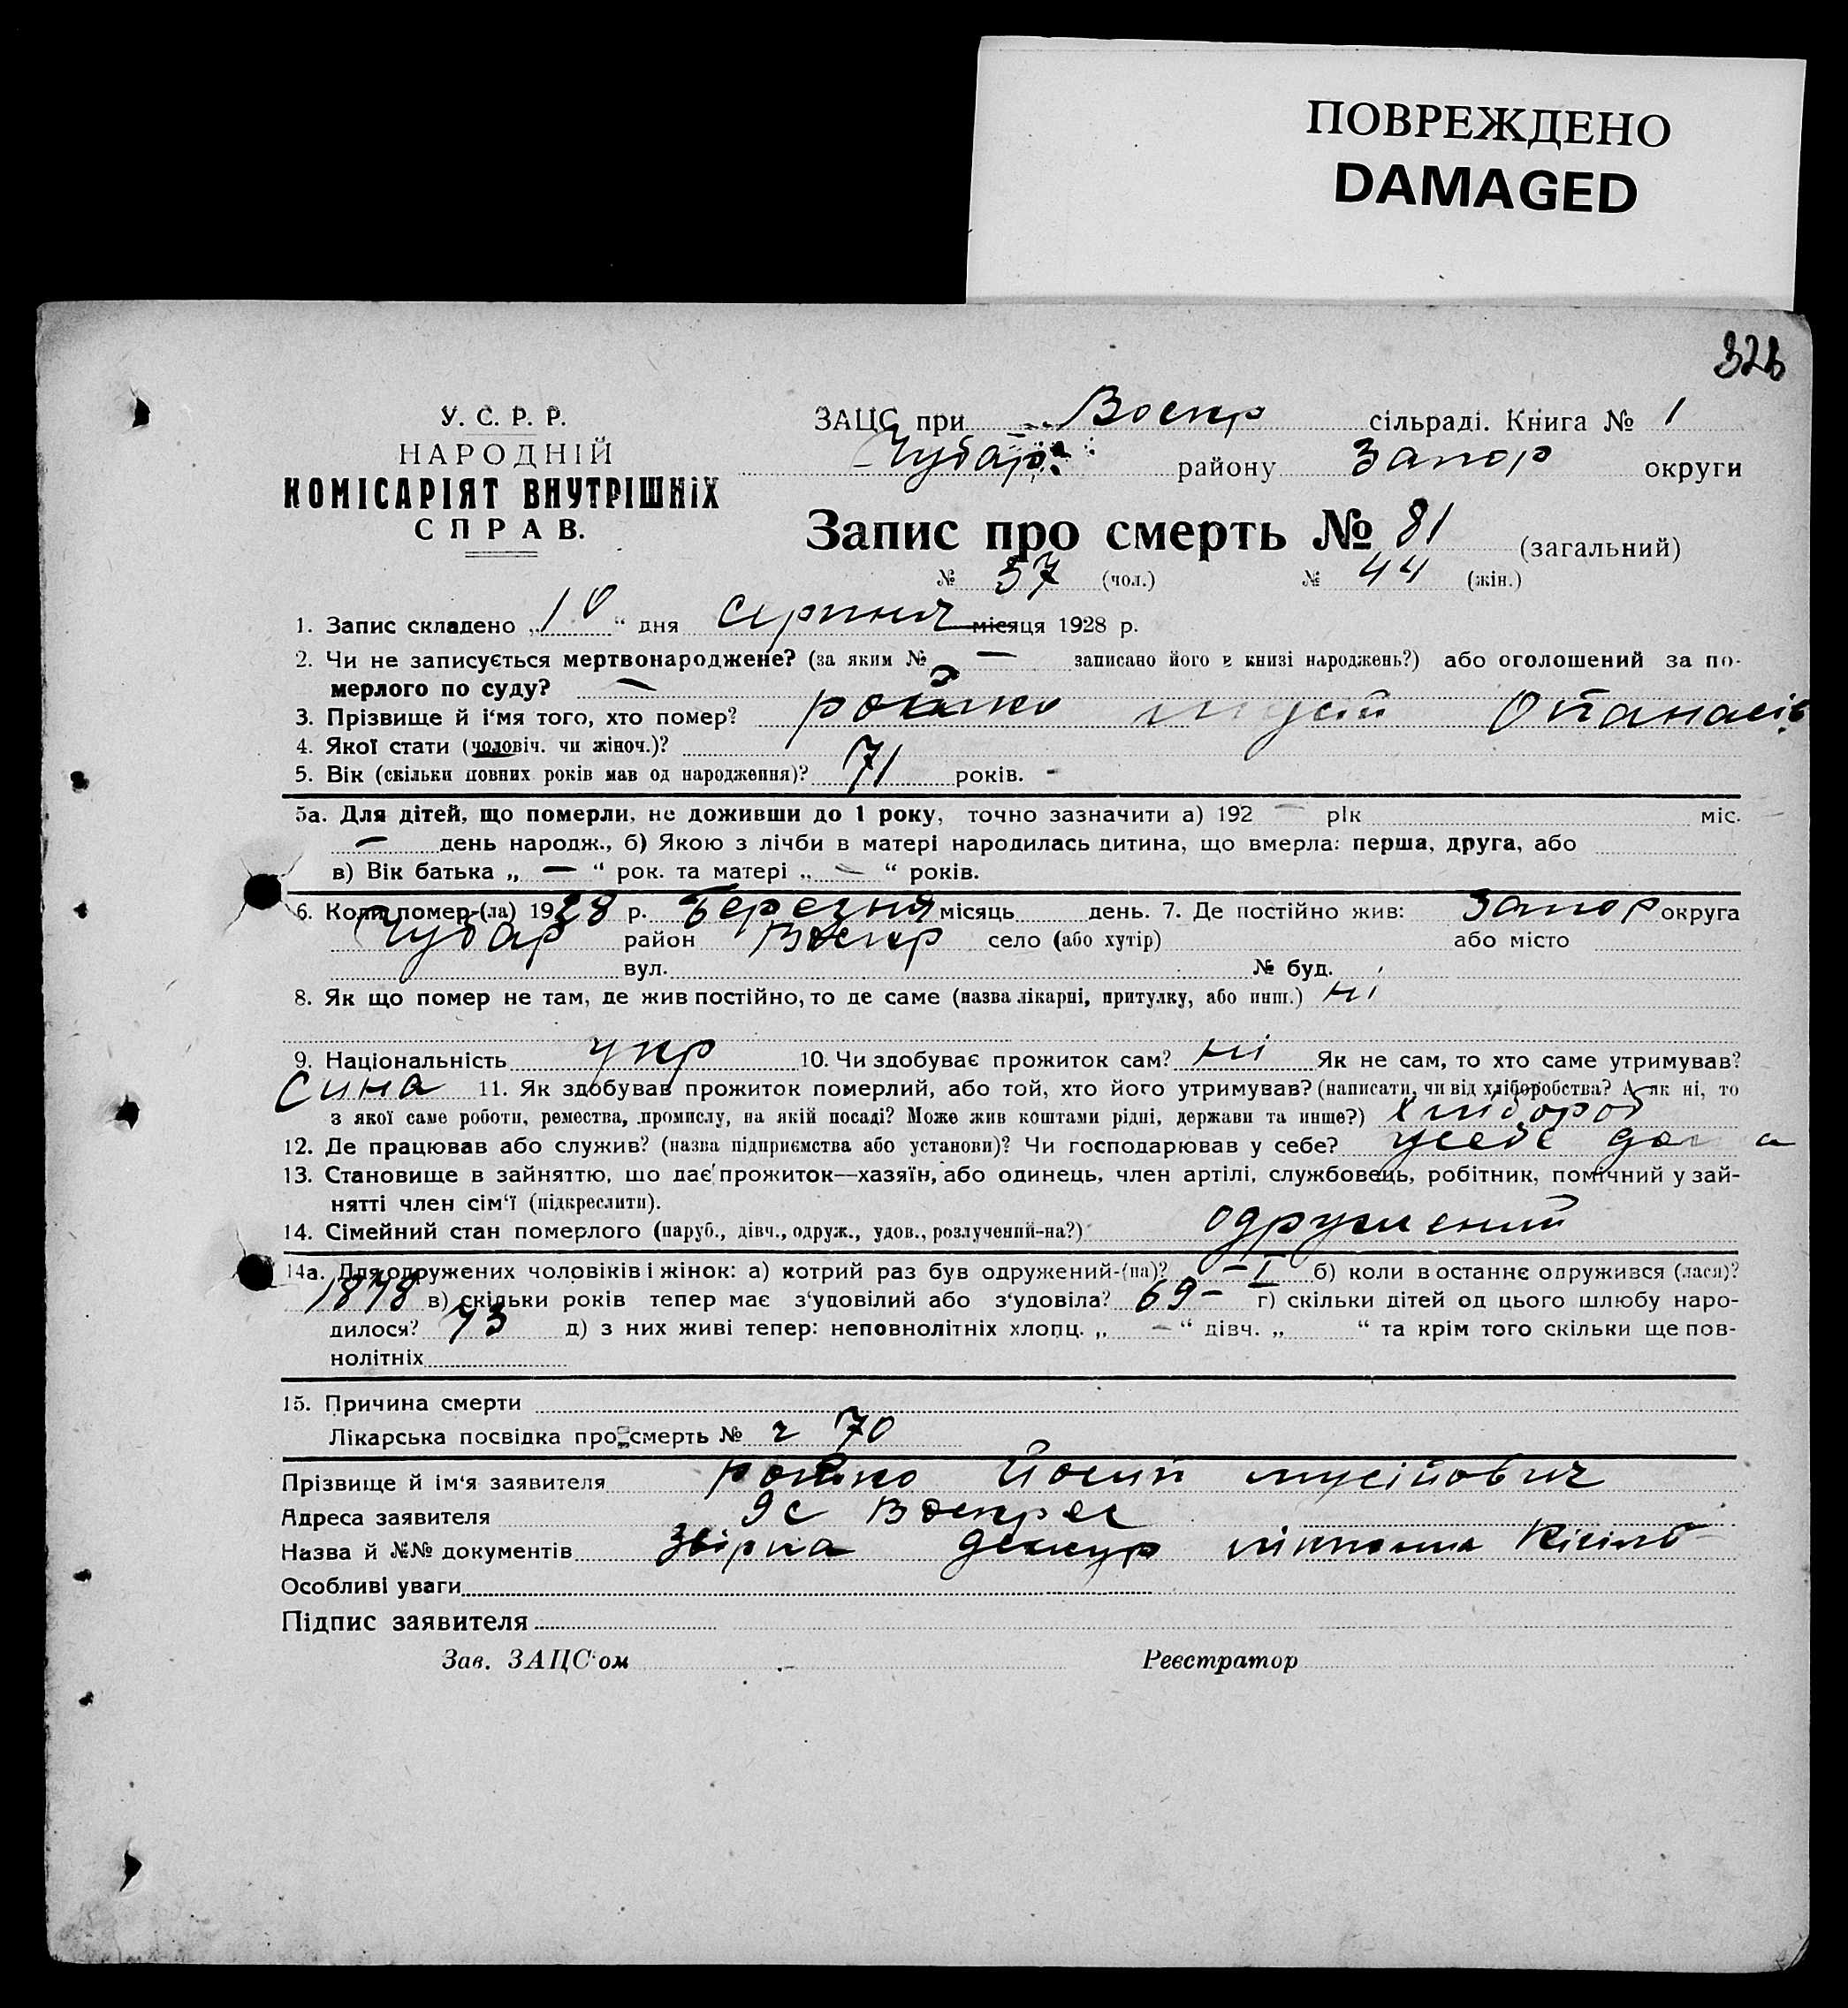 ПОВРЕЖДЕНО
DAMAGED
У. С. Р. Р.
НАРОДНІЙ
КОМІСАРІЯТ ВНУТРІШНІХ
СПРАВ.
ЗАЦС при Воскр сільраді. Книга № 1
Чубар району Запор округи
Запис про смерть № 81 (загальний)
№ 37 (чол.) № 44 (жін.)
1. Запис складено „10“ дня серпня місяця 1928 р.
2. Чи не записується мертвонароджене? (за яким № — записано його в книзі народжень?) або оголошений за по-
мерлого по суду? —
3. Прізвище й і'мя того, хто помер? Ройко Мусій Опанасів
4. Якої стати (чоловіч. чи жіноч.)?
5. Вік (скільки повних років мав од народження)? 71 років.
5а. Для дітей, що померли, не доживши до 1 року, точно зазначити а) 192 — рік міс.
— день народж., б) Якою з лічби в матері народилась дитина, що вмерла: перша, друга, або
в) Вік батька „ — “ рок. та матері „ — “ років.
6. Коли помер-(ла) 1928 р. Березня місяць день. 7. Де постійно жив: Запор округа
Чубар район Воскр село (або хутір) або місто
вул. № буд.
8. Як що помер не там, де жив постійно, то де саме (назва лікарні, притулку, або инш.) ні
9. Національність укр 10. Чи здобуває прожиток сам? ні Як не сам, то хто саме утримував?
Сина 11. Як здобував прожиток померлий, або той, хто його утримував? (написати, чи від хліборобства? А як ні, то
з якої саме роботи, ремества, промислу, на якій посаді? Може жив коштами рідні, держави та инше?) Хлібороб
12. Де працював або служив? (назва підприємства або установи)? Чи господарював у себе? усебе
13. Становище в зайняттю, що дає прожиток—хазяїн, або одинець, член артілі, службовець, робітник, помічний у зай-
нятті член сім'ї (підкреслити).
14. Сімейний стан померлого (паруб., дівч., одруж., удов., розлучений-на?) одружений
14а. Для одружених чоловіків і жінок: а) котрий раз був одружений-(на)? — I б) коли в останнє одружився (лася)?
1878 в) скільки років тепер має з'удовілий або з'удовіла? 69 — г) скільки дітей од цього шлюбу наро-
дилося? 13 д) з них живі тепер: неповнолітніх хлопц. „ — “ дівч. „ “ та крім того скільки ще пов-
нолітніх
15. Причина смерти
Лікарська посвідка про смерть № 70
Прізвище й ім'я заявителя Ройко Йосип Мусійович
Адреса заявителя Воскрес
Назва й №№ документів Звірка
Особливі уваги
Підпис заявителя
Зав. ЗАЦС'ом Реєстратор